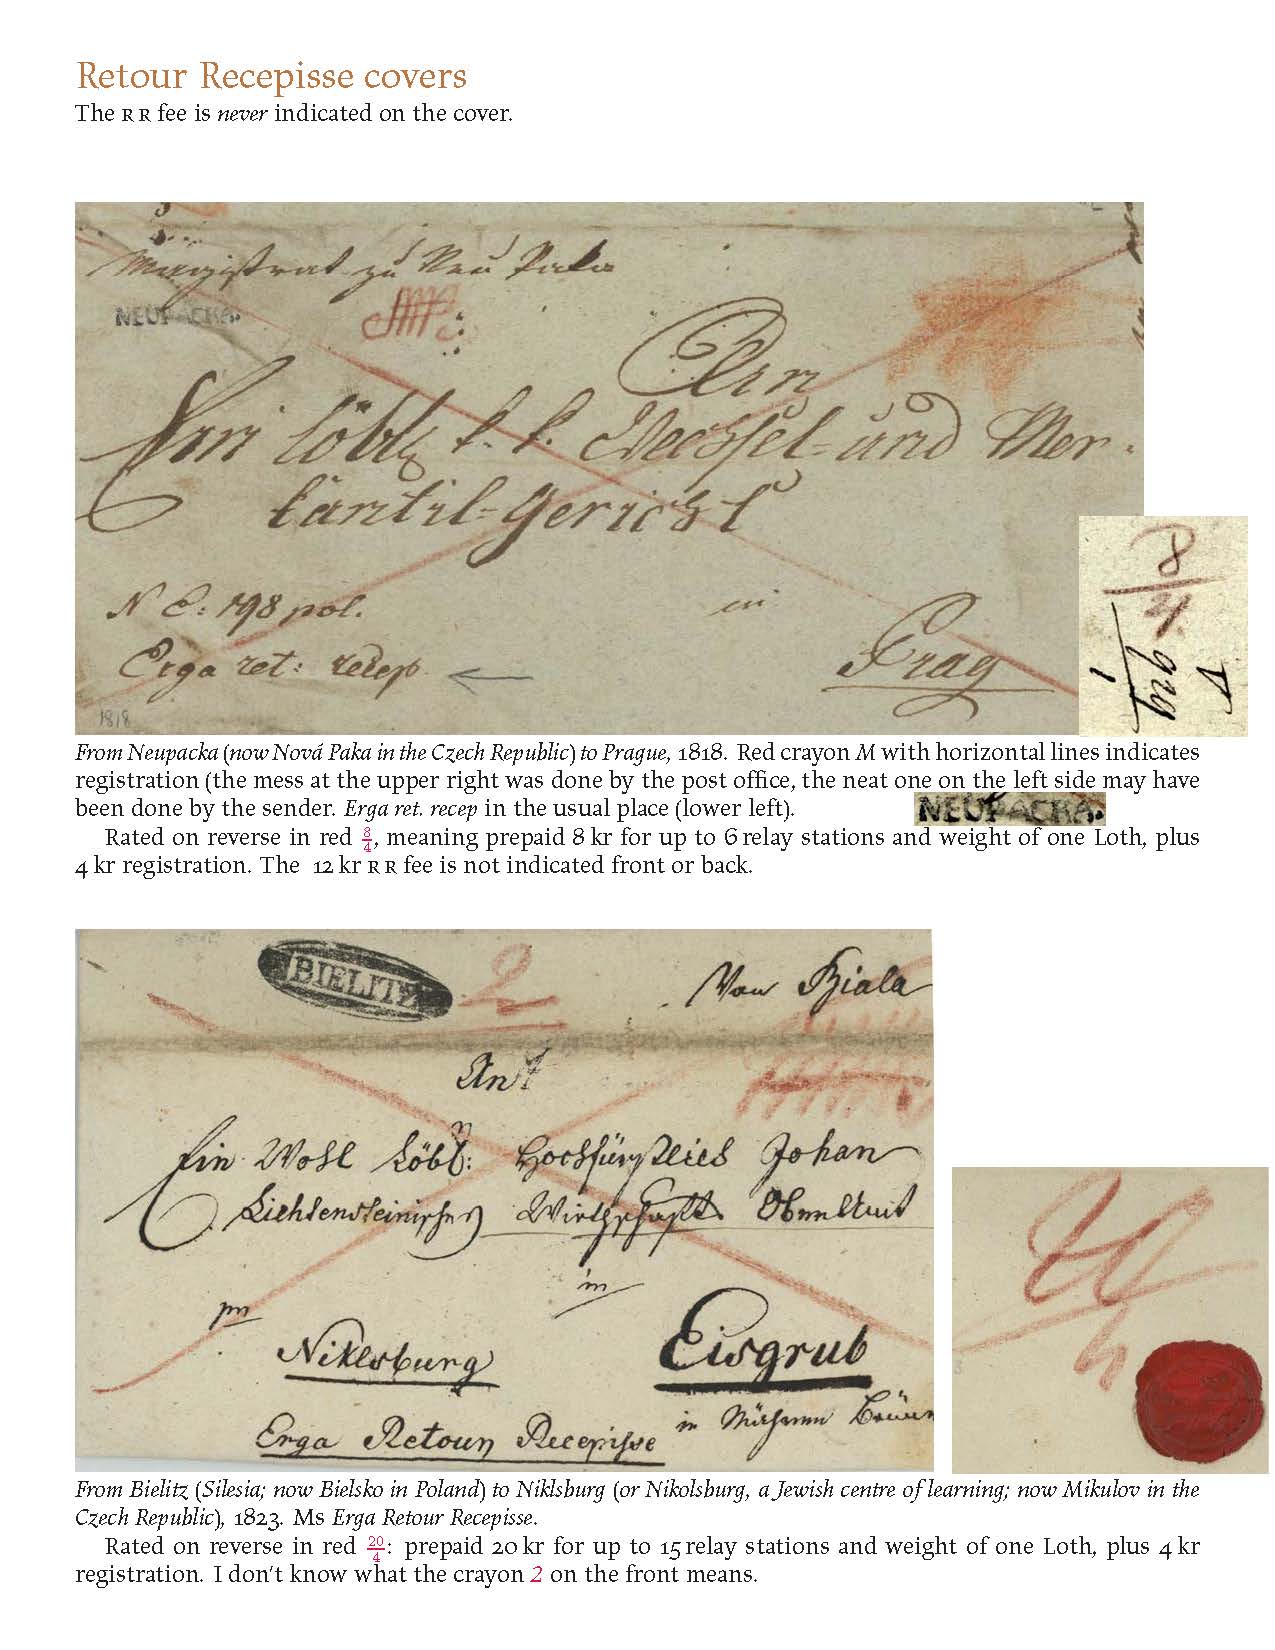 Retour Recepisse covers
The R R fee is never indicated on the cover.
Magistrat zu Neu Paka
NEUPACKA.
An
Ein löbl k. k. Wechsel- und Mer-
kantil-Gericht
N E: 198 pol.
in
Erga ret: recep
Prag
1818
8
4
NEUPACKA.
From Neupacka (now Nová Paka in the Czech Republic) to Prague, 1818. Red crayon M with horizontal lines indicates
registration (the mess at the upper right was done by the post office, the neat one on the left side may have
been done by the sender. Erga ret. recep in the usual place (lower left).
Rated on reverse in red 8/4, meaning prepaid 8 kr for up to 6 relay stations and weight of one Loth, plus
4 kr registration. The 12 kr R R fee is not indicated front or back.
BIELITZ
2
Von Biala
An
Ein Wohl Löbl: Hochfürstlich Johan
Lichtensteinisches Wirthschafts Oberamt
in
pr
Niklsburg
Eisgrub
in Mähren
Erga Retour Recepisse
20
4
From Bielitz (Silesia; now Bielsko in Poland) to Niklsburg (or Nikolsburg, a Jewish centre of learning; now Mikulov in the
Czech Republic), 1823. Ms Erga Retour Recepisse.
Rated on reverse in red 20/4: prepaid 20 kr for up to 15 relay stations and weight of one Loth, plus 4 kr
registration. I don't know what the crayon 2 on the front means.